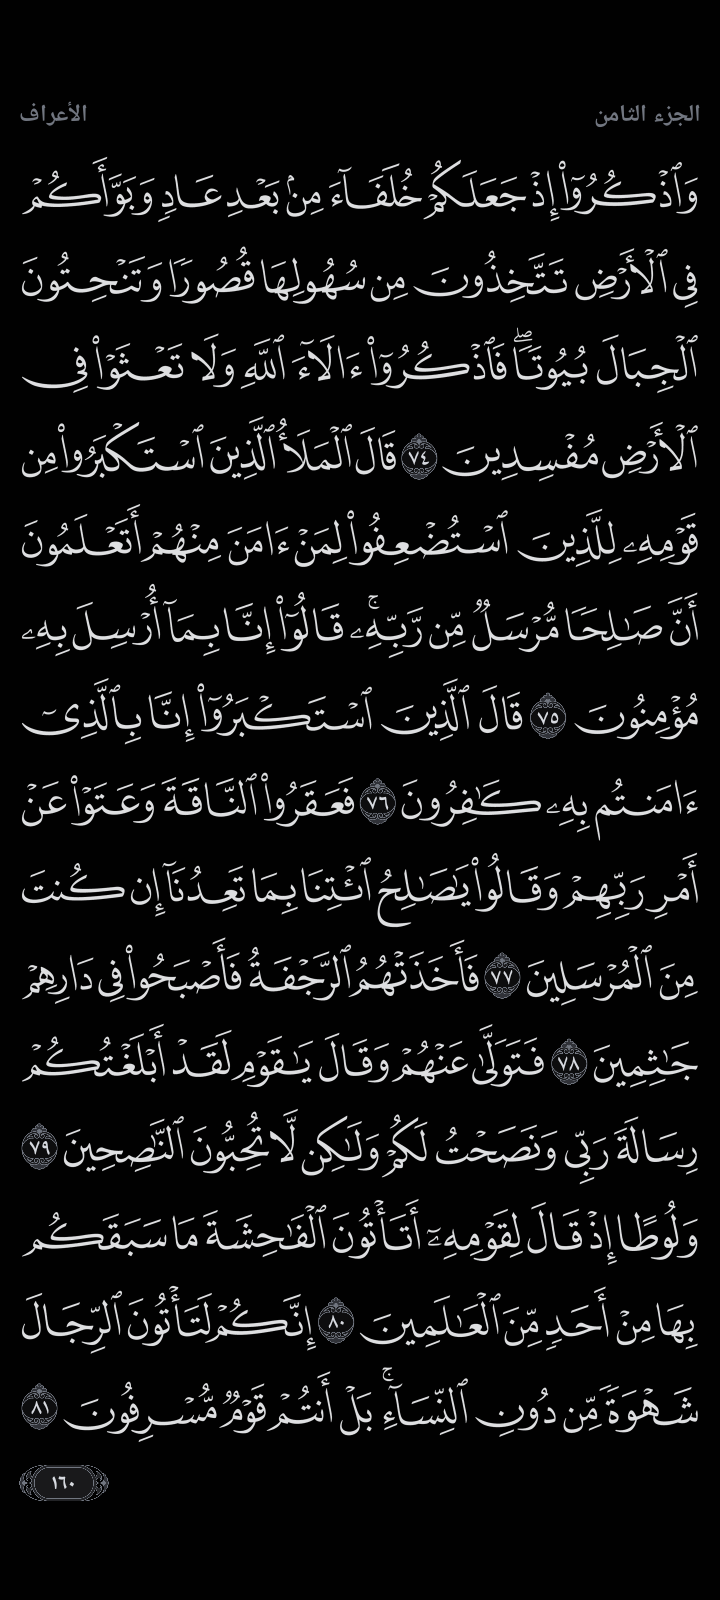 الجزء الثامن
الأعراف
وَٱذۡكُرُوٓاْ إِذۡ جَعَلَكُمۡ خُلَفَآءَ مِنۢ بَعۡدِ عَادٖ وَبَوَّأَكُمۡ
فِي ٱلۡأَرۡضِ تَتَّخِذُونَ مِن سُهُولِهَا قُصُورٗا وَتَنۡحِتُونَ
ٱلۡجِبَالَ بُيُوتٗاۖ فَٱذۡكُرُوٓاْ ءَالَآءَ ٱللَّهِ وَلَا تَعۡثَوۡاْ فِي
ٱلۡأَرۡضِ مُفۡسِدِينَ ٧٤ قَالَ ٱلۡمَلَأُ ٱلَّذِينَ ٱسۡتَكۡبَرُواْ مِن
قَوۡمِهِۦ لِلَّذِينَ ٱسۡتُضۡعِفُواْ لِمَنۡ ءَامَنَ مِنۡهُمۡ أَتَعۡلَمُونَ
أَنَّ صَٰلِحٗا مُّرۡسَلٞ مِّن رَّبِّهِۦۚ قَالُوٓاْ إِنَّا بِمَآ أُرۡسِلَ بِهِۦ
مُؤۡمِنُونَ ٧٥ قَالَ ٱلَّذِينَ ٱسۡتَكۡبَرُوٓاْ إِنَّا بِٱلَّذِيٓ
ءَامَنتُم بِهِۦ كَٰفِرُونَ ٧٦ فَعَقَرُواْ ٱلنَّاقَةَ وَعَتَوۡاْ عَنۡ
أَمۡرِ رَبِّهِمۡ وَقَالُواْ يَٰصَٰلِحُ ٱئۡتِنَا بِمَا تَعِدُنَآ إِن كُنتَ
مِنَ ٱلۡمُرۡسَلِينَ ٧٧ فَأَخَذَتۡهُمُ ٱلرَّجۡفَةُ فَأَصۡبَحُواْ فِي دَارِهِمۡ
جَٰثِمِينَ ٧٨ فَتَوَلَّىٰ عَنۡهُمۡ وَقَالَ يَٰقَوۡمِ لَقَدۡ أَبۡلَغۡتُكُمۡ
رِسَالَةَ رَبِّي وَنَصَحۡتُ لَكُمۡ وَلَٰكِن لَّا تُحِبُّونَ ٱلنَّٰصِحِينَ ٧٩
وَلُوطًا إِذۡ قَالَ لِقَوۡمِهِۦٓ أَتَأۡتُونَ ٱلۡفَٰحِشَةَ مَا سَبَقَكُم
بِهَا مِنۡ أَحَدٖ مِّنَ ٱلۡعَٰلَمِينَ ٨٠ إِنَّكُمۡ لَتَأۡتُونَ ٱلرِّجَالَ
شَهۡوَةٗ مِّن دُونِ ٱلنِّسَآءِۚ بَلۡ أَنتُمۡ قَوۡمٞ مُّسۡرِفُونَ ٨١
١٦٠